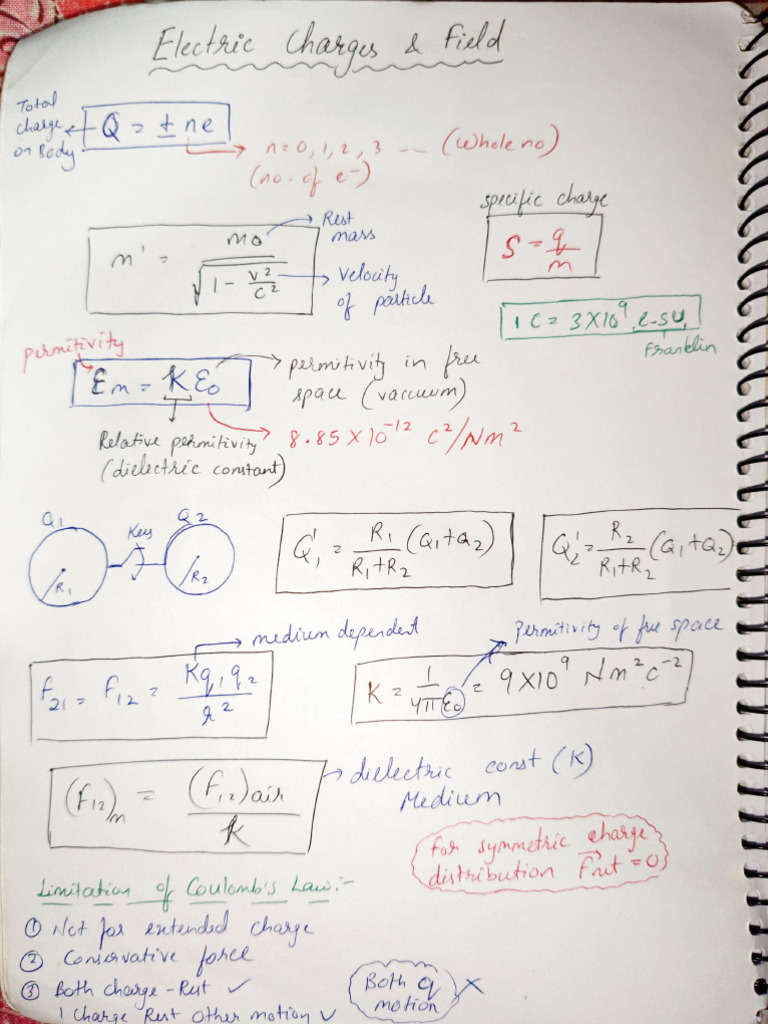 Electric Charges & Field
Total
charge
on Body
Q = ± ne
n = 0, 1, 2, 3 -- (Whole no)
(no. of e⁻)
specific charge
S = q/m
m' = m₀/√(1 - v²/c²)
Rest
mass
Velocity
of particle
1 C = 3X10⁹ e.s.u.
Franklin
permitivity
Em = Kε₀
permitivity in free
space (vacuum)
Relative permitivity
(dielectric constant)
8.85X10⁻¹² C²/Nm²
Q1
Key
Q2
R₁
R₂
Q₁' = R₁/(R₁+R₂) (Q₁+Q₂)
Q₂' = R₂/(R₁+R₂) (Q₁+Q₂)
medium dependent
Permitivity of free space
F₂₁ = F₁₂ = Kq₁q₂/r²
K = 1/4πε₀ = 9X10⁹ Nm²c⁻²
(F₁₂)m = (F₁₂)air/K
dielectric const (K)
Medium
For symmetric charge
distribution Fnet = 0
Limitation of Coulomb's Law:-
① Not for extended charge
② Conservative force
③ Both charge - Rest ✓
1 Charge Rest other motion ✓
Both q
motion ✗